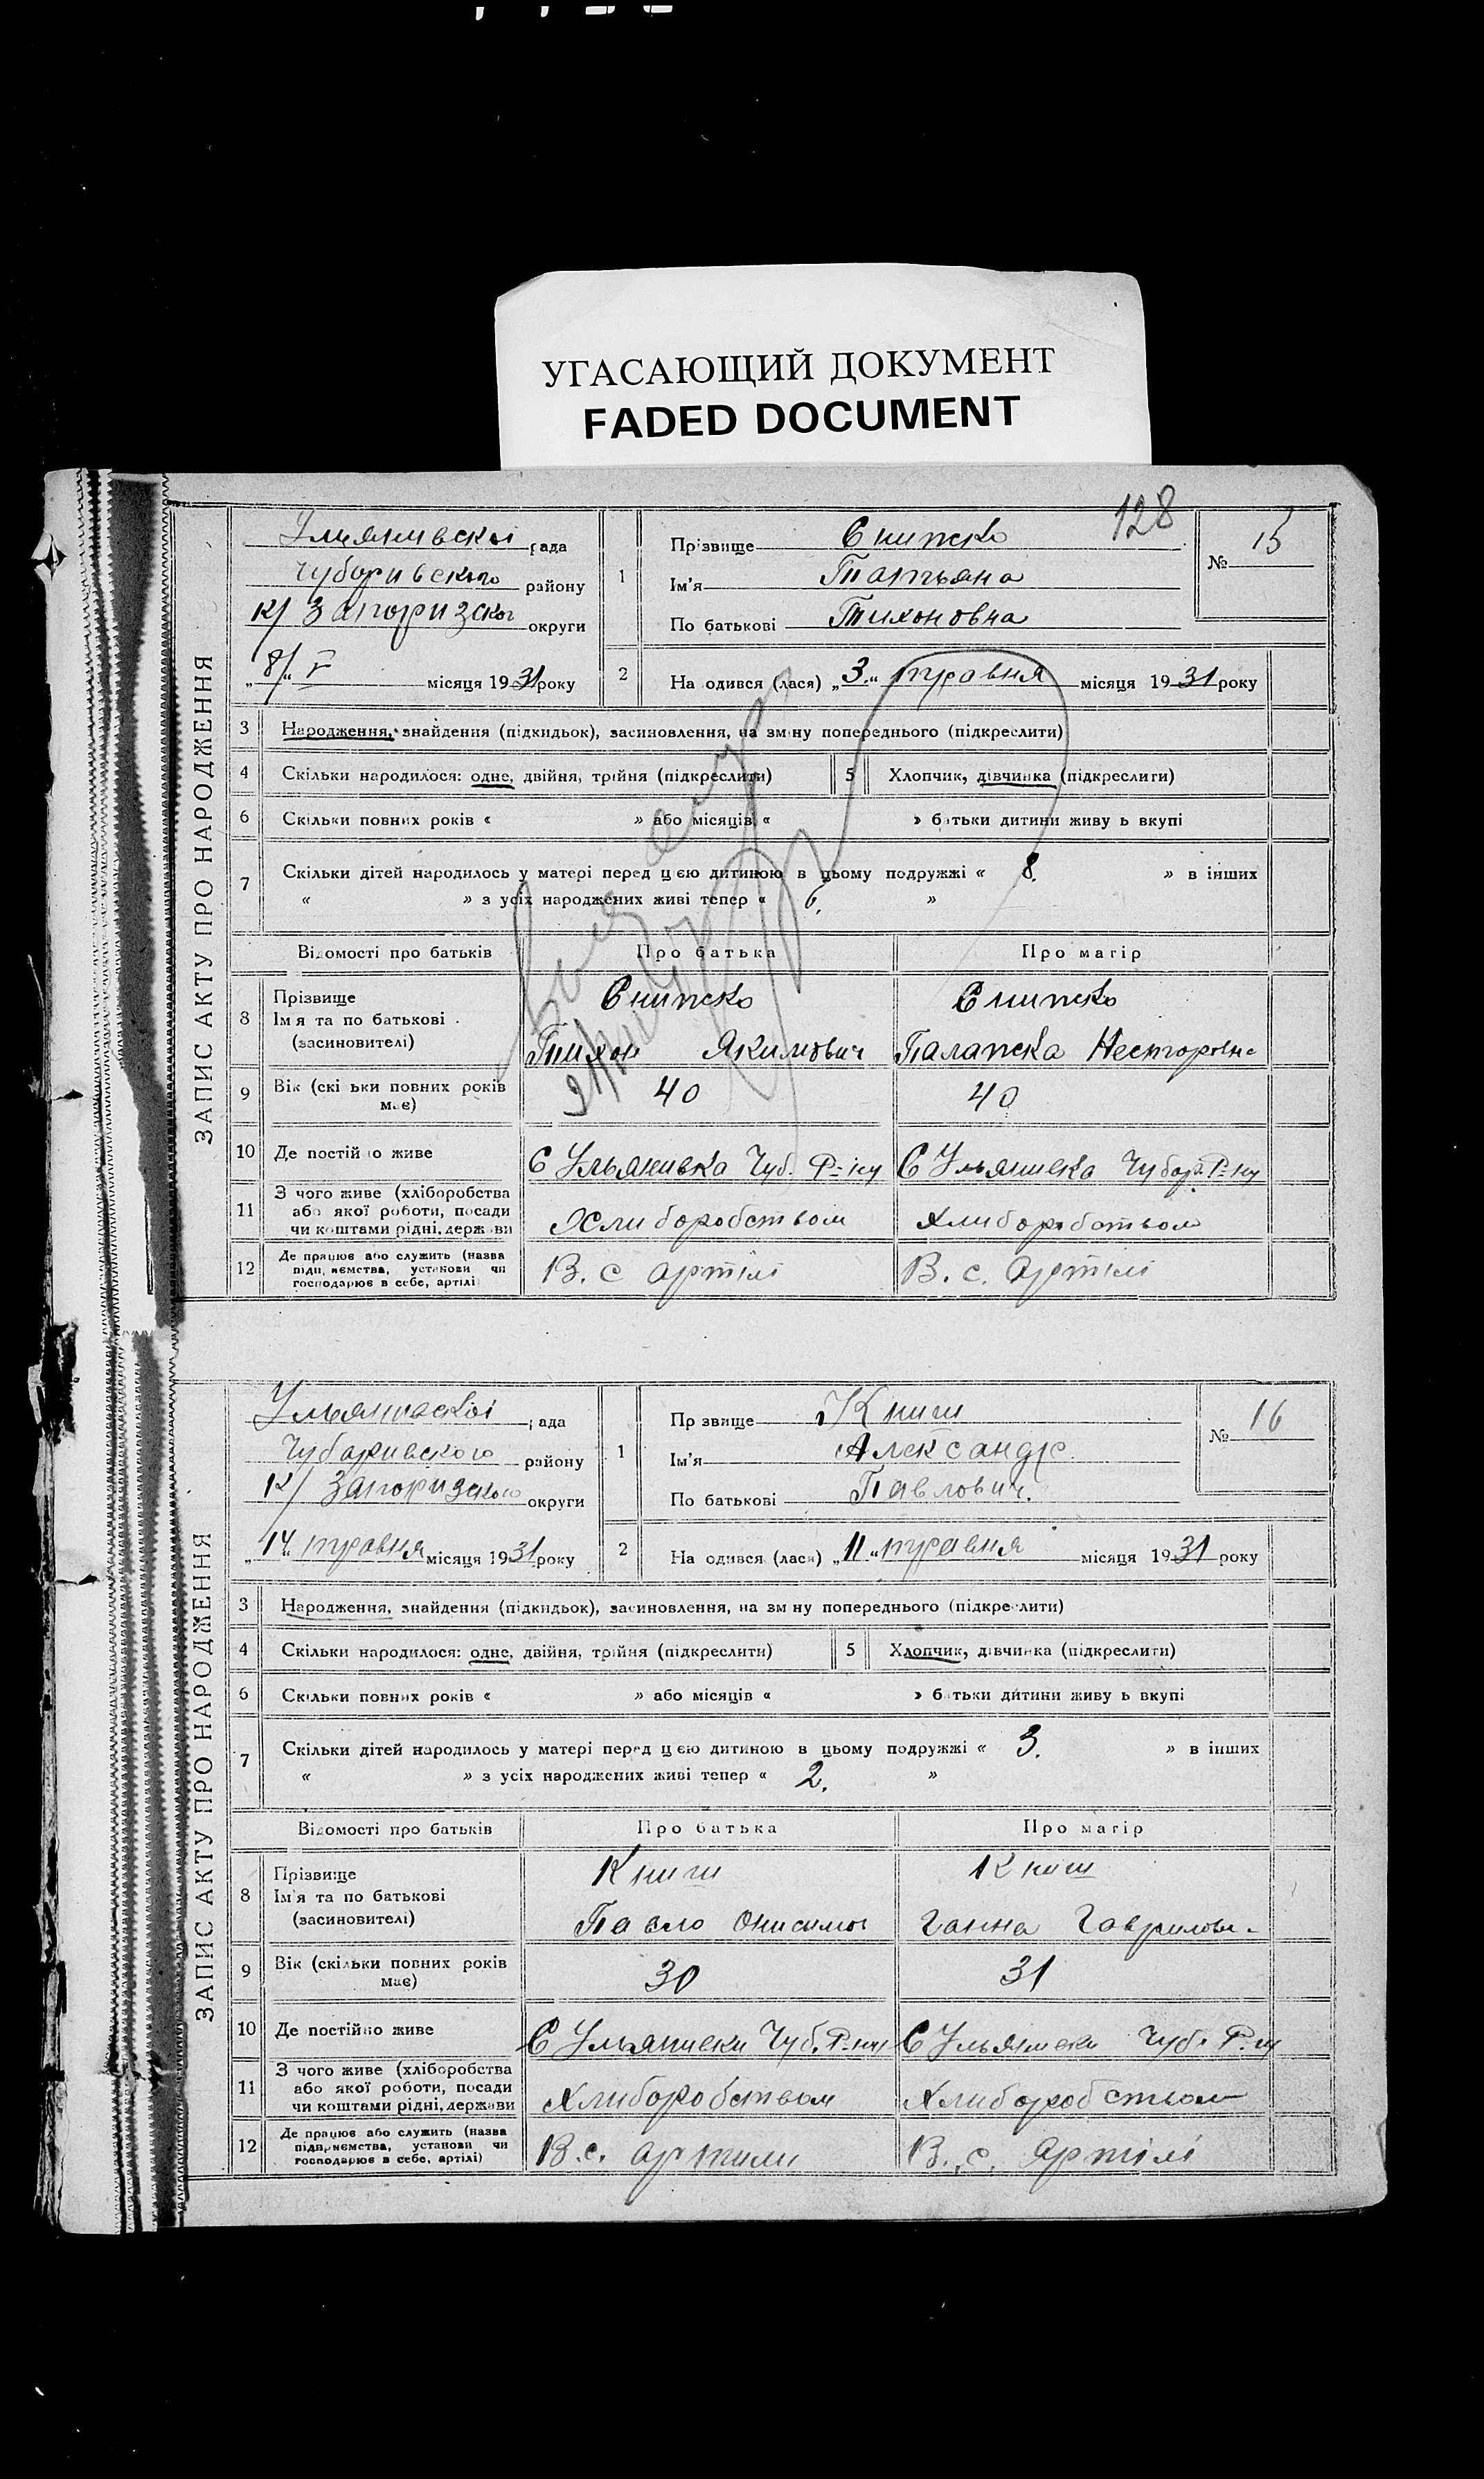 УГАСАЮЩИЙ ДОКУМЕНТ
FADED DOCUMENT
128
ЗАПИС АКТУ ПРО НАРОДЖЕННЯ
Улияновской рада
Чубаривського району
К/ Запоризског округи
„8/“ V місяця 1931 року
1 Прізвище Снипско
Ім'я Татьяна
По батькові Тихоновна
№ 15
2 На одився (лася) „3.“ травня місяця 1931 року
3 Народження, знайдення (підкидьок), засиновлення, на зміну попереднього (підкреслити)
4 Скільки народилося: одне, двійня, трійня (підкреслити) 5 Хлопчик, дівчинка (підкреслити)
6 Скільки повних років « » або місяців « » батьки дитини живу ь вкупі
7 Скільки дітей народилось у матері перед цією дитиною в цьому подружжі « 8. » в інших
« » з усіх народжених живі тепер « 6. »
Відомості про батьків Про батька Про матір
8 Прізвище Снипско Снипско
Ім я та по батькові
(засиновителі) Тихон Якимович Палажка Несторовна
9 Вік (скі ьки повних років має) 40 40
10 Де постійно живе С Ульянивка Чуб. Р-ну С Ульянивка Чубар. Р-ну
11 З чого живе (хліборобства
або якої роботи, посади
чи коштами рідні, держави Хлиборобством Хлиборобством
12 Де працює або служить (назва
підприємства, установи чи
господарює в себе, артілі В. с артілі В. с. Артілі
ЗАПИС АКТУ ПРО НАРОДЖЕННЯ
Ульяновской рада
Чубаривского району
К/ Запоризкого округи
„14“ травня місяця 1931 року
1 Пр звище Книш
Ім'я Александр
По батькові Павлович.
№ 16
2 На одився (лася) „11“ травня місяця 1931 року
3 Народження, знайдення (підкидьок), засиновлення, на зміну попереднього (підкреслити)
4 Скільки народилося: одне, двійня, трійня (підкреслити) 5 Хлопчик, дівчинка (підкреслити)
6 Скільки повних років « » або місяців « » батьки дитини живу ь вкупі
7 Скільки дітей народилось у матері перед цією дитиною в цьому подружжі « 3. » в інших
« » з усіх народжених живі тепер « 2. »
Відомості про батьків Про батька Про матір
8 Прізвище Книш Книш
Ім'я та по батькові
(засиновителі) Павло Онисимов Ганна Гаврилов.
9 Вік (скільки повних років має) 30 31
10 Де постійно живе С Ульянивки Чуб. Р-ну С Ульянивки Чуб. Р-ну
11 З чого живе (хліборобства
або якої роботи, посади
чи коштами рідні, держави Хлиборобством Хлиборобством
12 Де працює або служить (назва
підприємства, установи чи
господарює в себе, артілі) В. с. артили В. с. Артілі